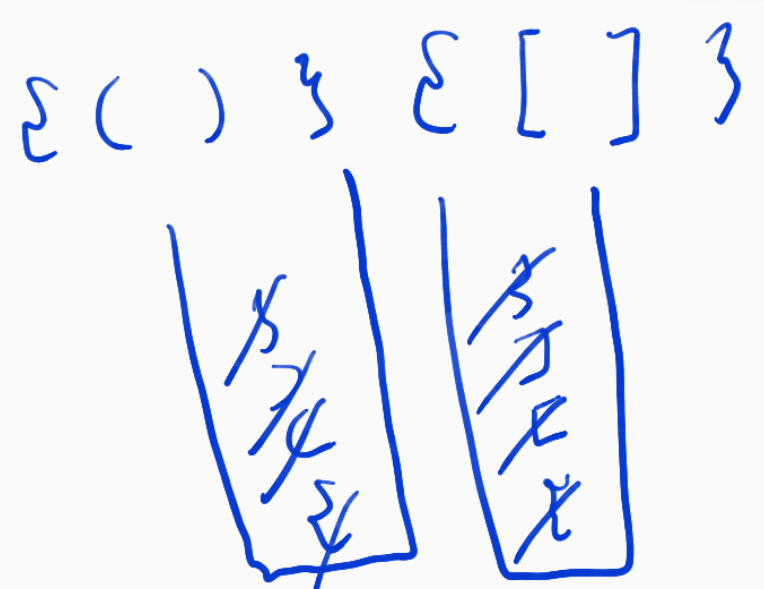 { ( ) } { [ ] }
} }
) ]
( [
{ {